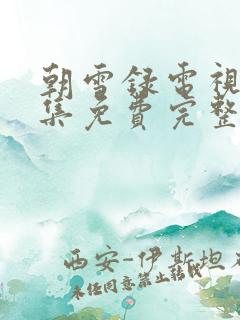 朝雪錄電視
集免費完整
西安-伊斯坦
未经同意禁止转载